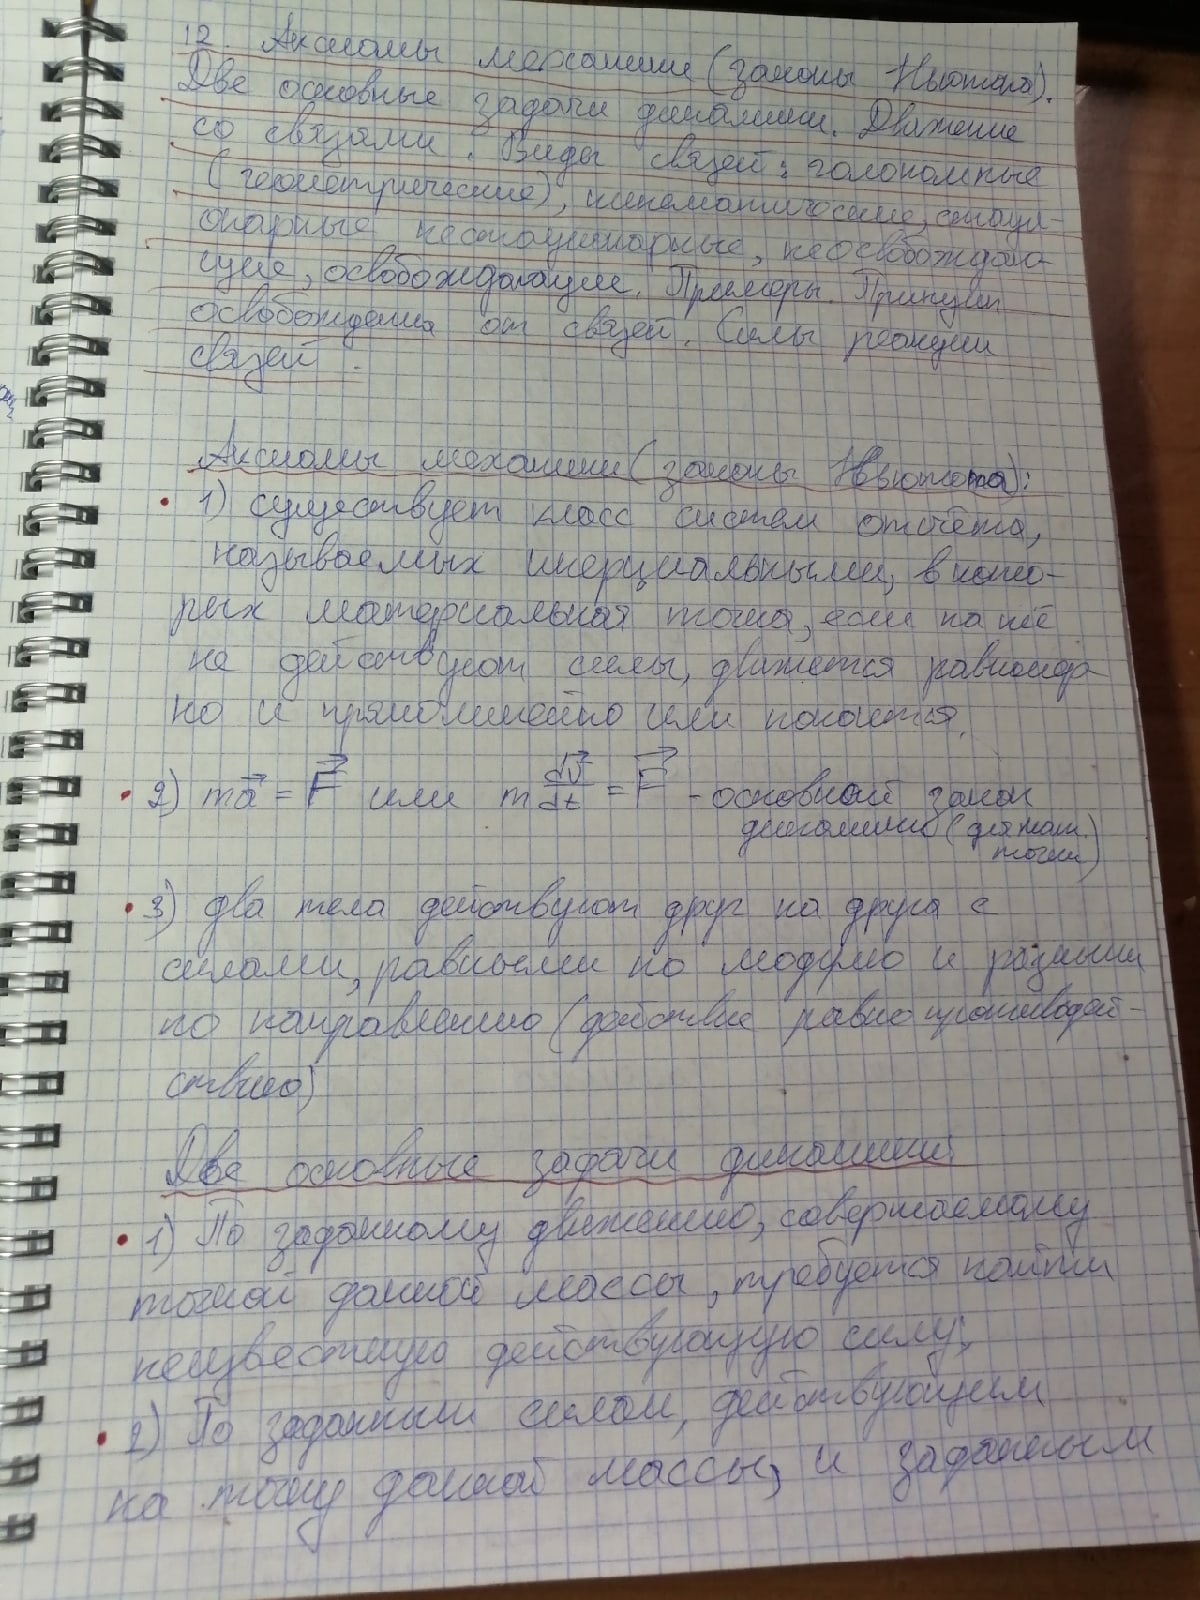 12. Аксиомы механики (законы Ньютона).
Две основные задачи динамики. Движение
со связями. Виды связей: голономные
(геометрические), кинематические, стаци-
онарные нестационарные, неосвобождаю-
щие, освобождающие. Примеры. Принцип
освобождения от связей. Силы реакции
связей.
Аксиомы механики (законы Ньютона):
1) существует класс систем отсчёта,
называемых инерциальными, в кото-
рых материальная точка, если на неё
не действуют силы, движется равномер-
но и прямолинейно или покоится.
2) ma⃗ = F⃗ или m dv⃗/dt = F⃗ - основной закон
динамики (для мат.
точки)
3) два тела действуют друг на друга с
силами, равными по модулю и разными
по направлению (действие равно противодей-
ствию)
Две основные задачи динамики
1) По заданному движению, совершаемому
точкой данной массы, требуется найти
неизвестную действующую силу;
2) По заданным силам, действующим
на точку данной массы, и заданным